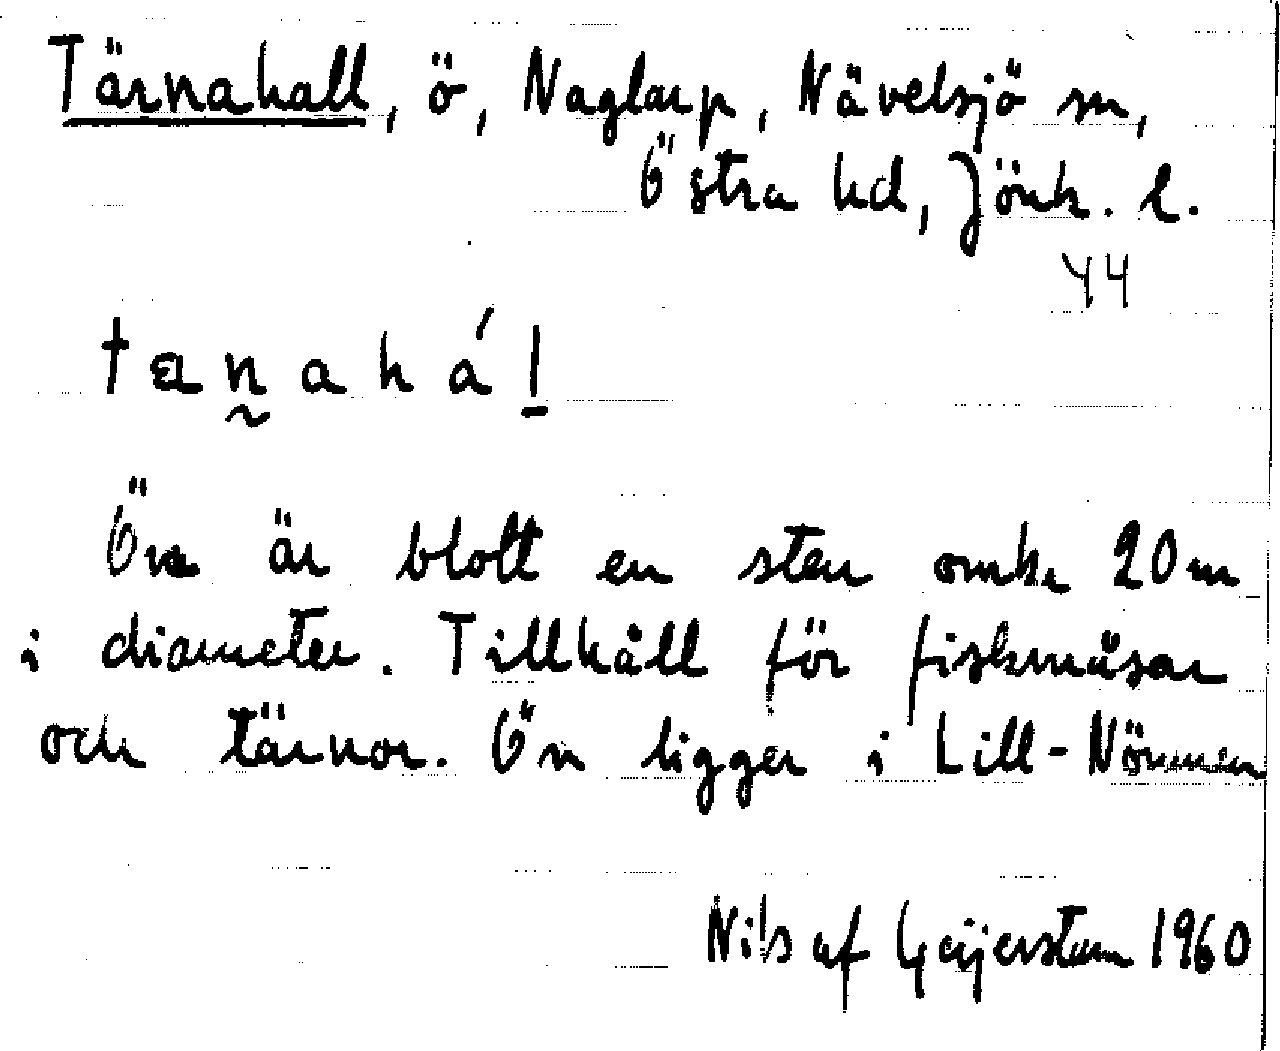 Tärnahall, ö, Naglarp, Nävelsjö sn,
Östra hd, Jönk. l.
44
tɛṇ̃ahál̲
Ön är blott en sten omkr 20 m
i diameter. Tillhåll för fiskmåsar
och tärnor. Ön ligger i Lill-Nömmen
Nils af Geijerstam 1960